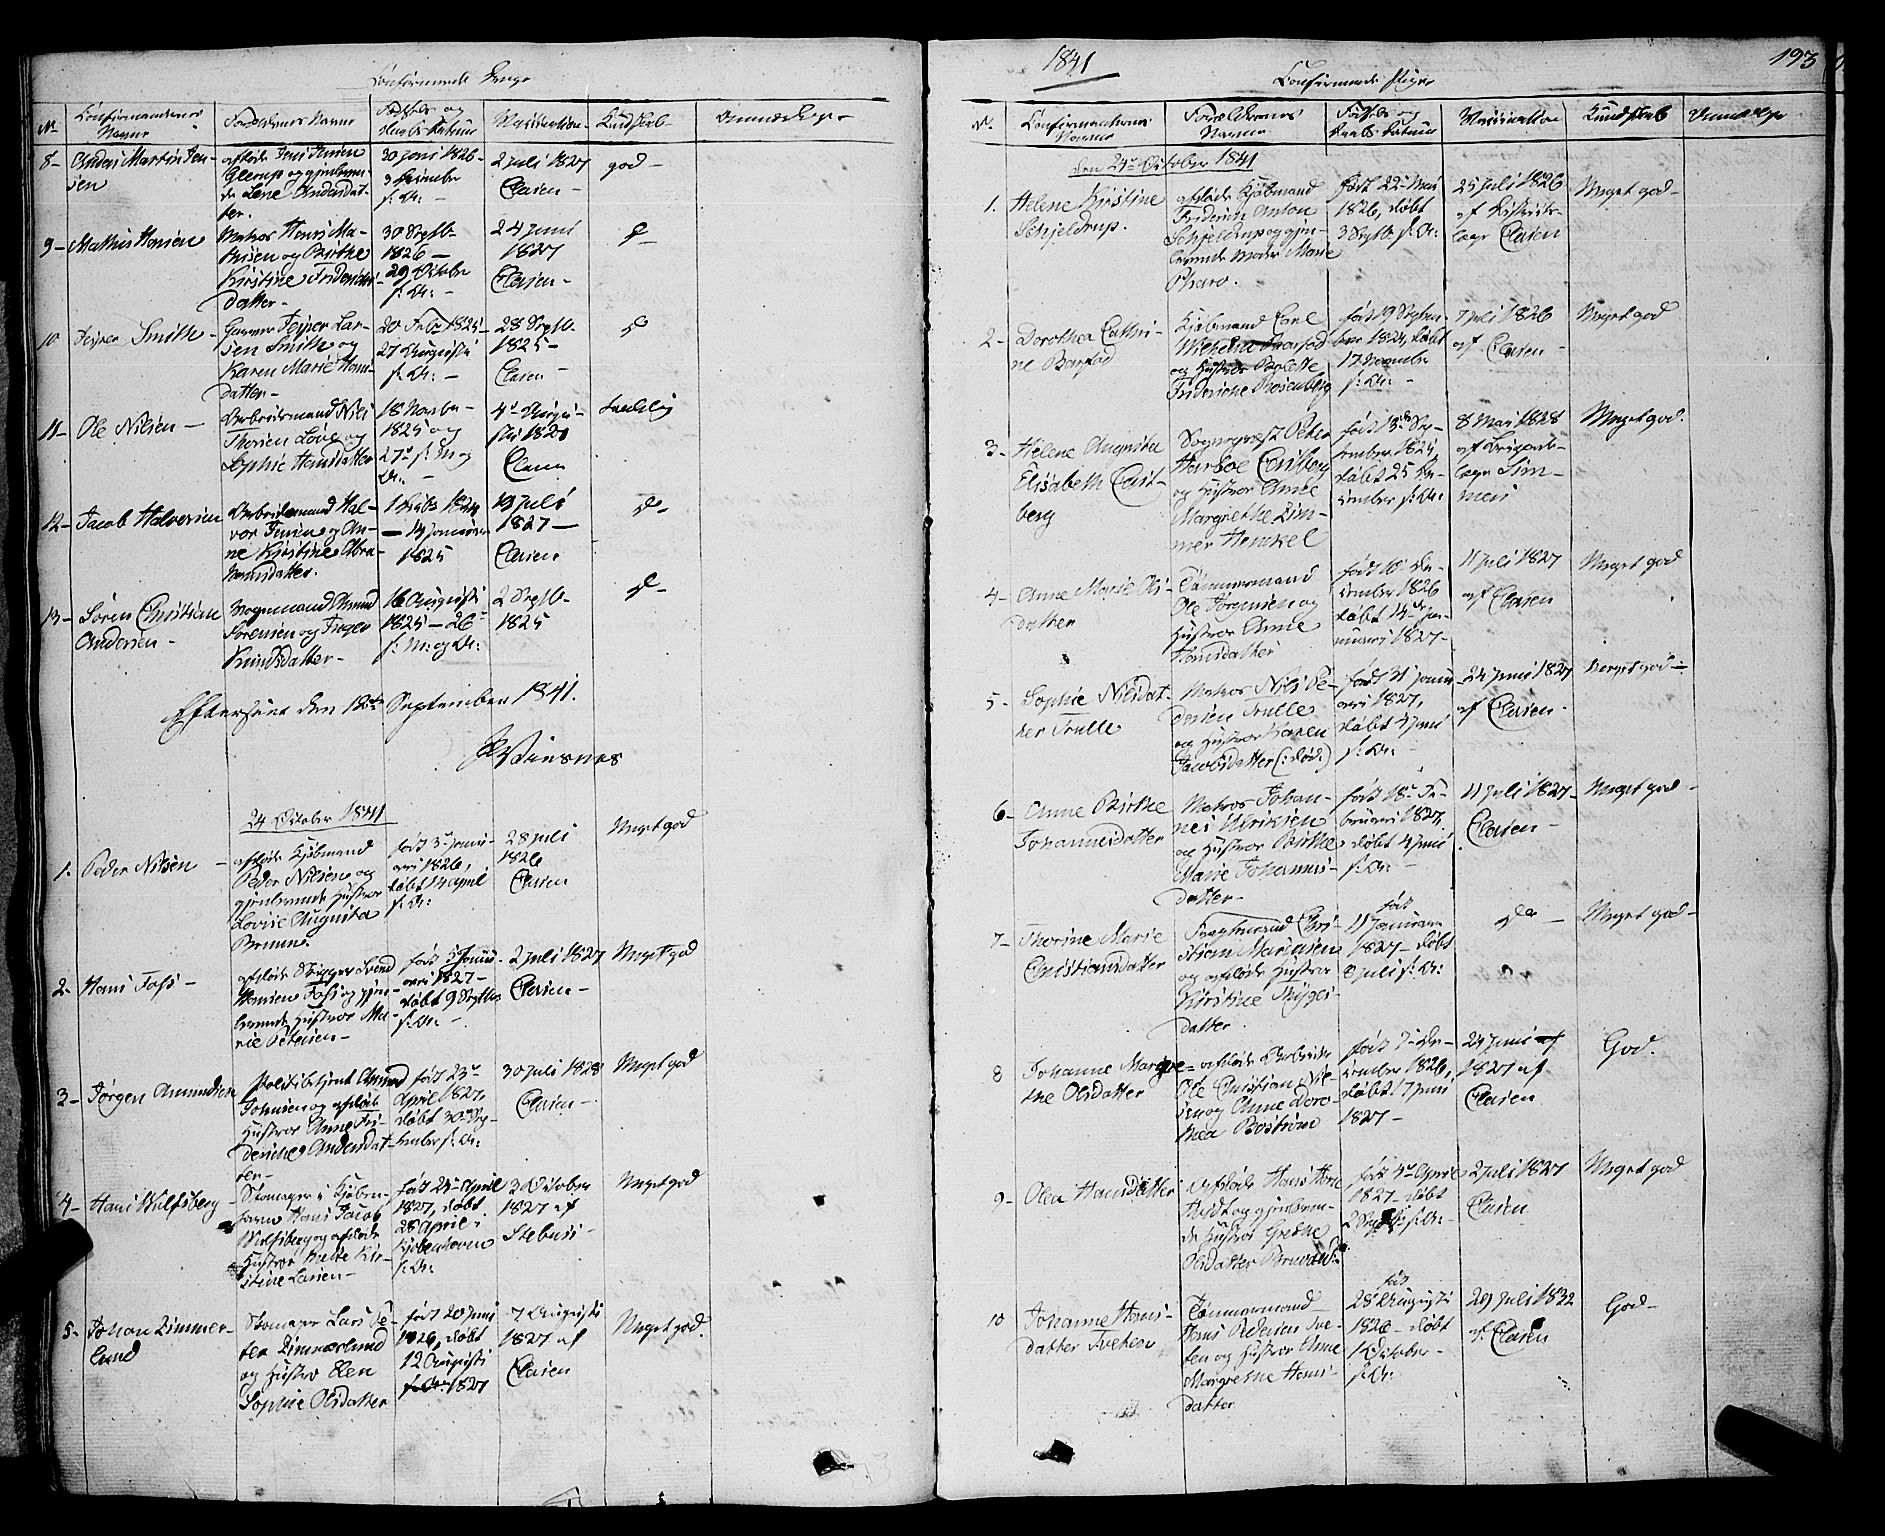 Confirmerede Drenge
No
Confirmandernes
Navne
Forældrenes Navne
Fødsels og
Daabs Datum
Vaccination
Kundskab
Anmærkn.
8- Anders Martin Jen-
sen
afdøde Jens Jensen
Glerup og gjenleven-
de Lene Andersdat-
ter.
30 Juni 1826-
3 December
s: A: -
2 Juli 1827
Clasen -
god -
9- Mathis Hansen
Matros Hans Ma-
thisen og Birthe
Kirstine Friderichs-
datter -
30 Septb-
1826 -
29 October
s: A: -
24 Juni
1827
Clasen -
d-
10 Jesper Smith -
Garver Jesper Lar-
sen Smith og
Karen Marie Hans-
datter -
20 Febr 1825 -
27 Augusti
s: A: -
28 Septb-
1825 -
Clasen -
d-
11- Ole Nilsen -
Arbeidsmand Niels
Thorsen Løve og
Sophie Hansdatter
18 Novbr-
1825 og
27de s: M og
A: -
4de Augus-
ti 1828
Clasen
taalelig
12- Jacob Halvorsen
Arbeidsmand Hal-
vor Jensen og An-
ne Kirstine Abra-
hamsdatter.
1 Decbr 1824
- 14 Januari
1825
13 Juli
1827 -
Clasen
d-
13- Søren Christian
Andersen -
Vognmand Amund
Sørensen og Inger
Knudsdatter -
16 Augusti
1825 - 26-
s: M: og A:
2 Septb-
1825
d-
Efterseet den 12te September 1841.
Winsnes
24 October 1841
1. Peder Nilsen -
afdøde Kjøbmand
Peder Nilsen og
gjenlevende Hustroe
Lovise Augusta
Bruun.
født 3- Janu-
ari 1826,
døbt 14 April
s: A:
28 Juli
1826
Clasen
Meget god
2- Hans Foss -
afdøde Skipper Svend
Hansen Foss og gjen-
levende Hustroe Ma-
rie Petersen -
født 5 Janu-
ari 1827 -
døbt 9 Septbr
s: A: -
2 Juli 1827
Clasen -
Meget god
3- Jørgen Amundsen
Politibetjent Amund
Johnsen og afdøde
Hustroe Anne Fri-
deriche Andersdat-
ter -
født 23-
April 1827,
døbt 30 Sep-
tember s: A:
30 Juli 1828
Clasen -
Meget god
4- Hans Wulfsberg -
Skomager i Kjøben-
havn Hans Jacob
Wulfsberg og afdøde
Hustroe Birthe Kir-
stine Larsen -
født 25- April
1827, døbt
28 April i
Kjøbenhavn
s: A:
3 October
1827 af
Stebuss -
Meget god
5- Johan Zimmer-
lund
Skomager Lars Pe-
ter Zimmerlund
og Hustro Elen
Sophie Olsdatter
født 20 Juni
1826, døbt
12 Augusti
s: A: 1827
7 Augusti
1827 af
Clasen
Meget god.
1841
Confirmerede Piger
193
No.
Confirmandernes
Navne
Forældrenes
Navne
Fødsels og
Daabs Datum
Vaccination
Kundskab
Anmærkn.
den 24de October 1841
1. Helene Kirstine
Schjeldrup.
afdøde Kjøbmand
Friderich Anton
Schjeldrup og gjen-
levende Moder Marie
Pharo.
født 22- Mai
1826, døbt
3 Septb s: A:
25 Juli 1826
af Districts-
læge Clasen
Meget god -
2- Dorothea Cathri-
ne Barstad
Kjøbmand Carl
Wilhelm Barstad
og Hustroe Bolette
Frideriche Rosenberg
født 19 Septem-
ber 1824, døbt
17 November
s: A: -
7 Juli 1826
af Clasen -
Meget god
3- Helene Augusta
Elisabeth Cast-
berg
Sogneprest Peter
Harboe Castberg
og Hustroe Anne
Margrethe Zim-
mer Henckel
født 13de Sep-
tember 1825,
døbt 25 De-
cember s: A:
8 Mai 1828
af Brigade-
læge Sim-
mers
Meget god.
4- Anne Marie Ols-
datter
Tømmermand
Ole Jørgensen og
Hustroe Anne
Hansdatter
født 10 De-
cember 1826
døbt 14de Ja-
nuari 1827 -
11 Juli 1827
af Clasen
Meget god
5- Sophie Nilsdat-
ter Trulle
Matros Nils Pe-
dersen Trulle
og Hustroe Karen
Jacobsdatter (: død:)
født 31 Janu-
ari 1827,
døbt 4 Juni
s: A: -
24 Juni 1827
af Clasen -
Meget god -
6- Anne Birthe
Johannesdatter
Matros Johan-
nes Ulriksen
og Hustroe Birthe
Marie Johannes-
datter -
født 18- Fe-
bruari 1827,
døbt 4 Juni
s: A: -
11 Juli 1827 -
Clasen -
Meget god -
7- Thorine Marie
Christiansdatter
Fragtmand Chri-
stian Martinsen
og afdøde Hustroe
Kirstine Thyges-
datter.
født
11 Januari
1827 - døbt
8 Juli s: A:
do -
Meget god -
8 Johanne Margre-
the Olsdatter
afdøde Arbeids-
Ole Christian Niel-
sen og Anne Doro-
thea Boström
født 7- De-
cember 1826,
døbt 17 Juni
1827 -
24 Juni
1827 af
Clasen
God.
9- Olea Hansdatter
Afdøde Hans Han-
og gjenleven-
de Hustroe Grethe
Olsdatter
født 4de April
1827 - døbt
2 Septb s: A: -
2 Juli 1827
Clasen
Meget god
10 Johanne Hans-
datter Tveten
Tømmermand
Hans Pedersen Tve-
ten og Hustroe Anne
Margrethe Hans-
datter
født
28 Augusti
1826 - døbt
1 October -
s: A:
29 Juli 1832
af Clasen
God -